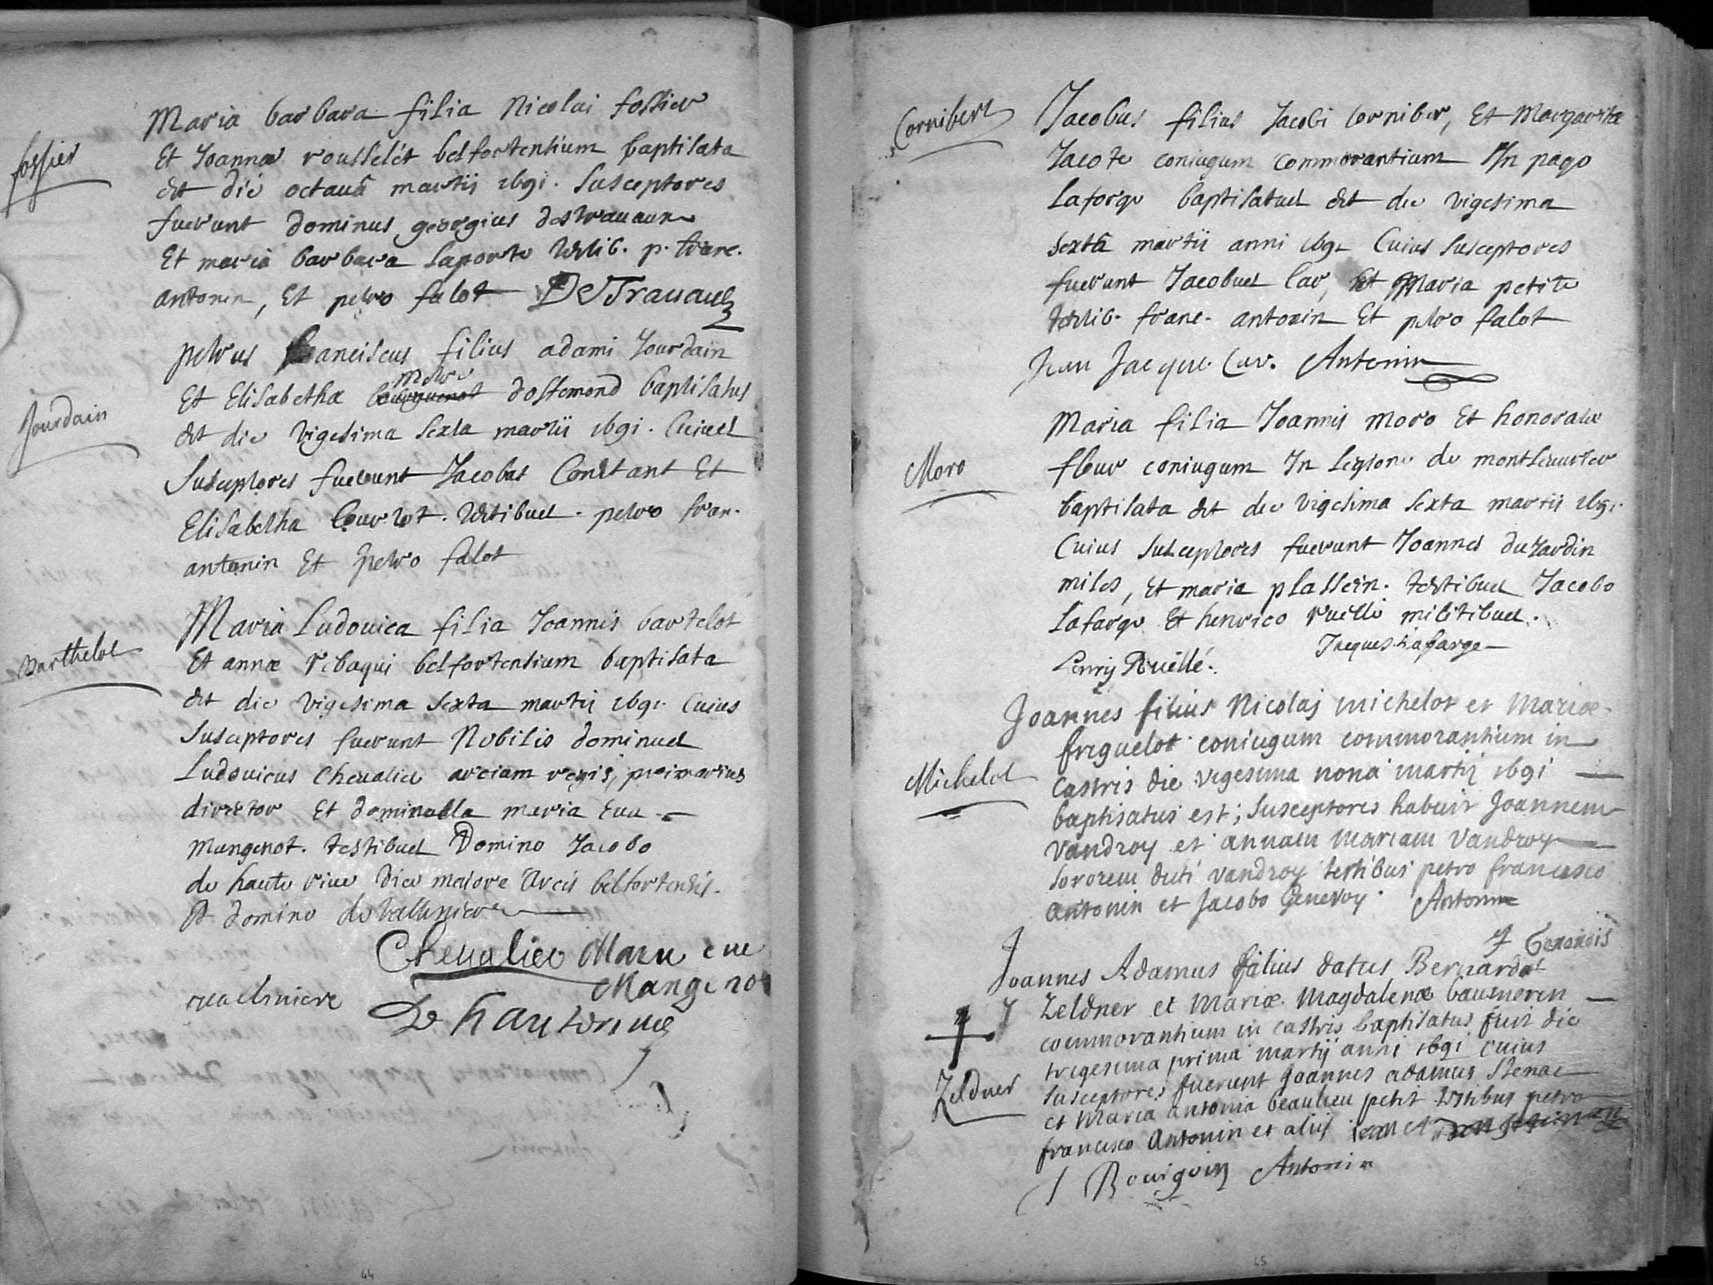 fossier
Maria barbara filia Nicolai fossier
Et Joannæ rousselet belfortensium baptisata
est die octauâ martii 1691. Susceptores
fuerunt dominus georgius destrauaux
Et maria barbara laporte testib. p. franc.
antonin, Et petro falot DesTrauaux
Jourdain
petrus franciscus filius adami Jourdain
mo
Et Elisabethæ dostemond baptisatus
est die vigesima sexta martii 1691. Cuius
Susceptores fuerunt Jacobus Constant Et
Elisabetha Courtot. testibus. petro fran.
antonin Et petro falot
Barthelot
Maria Ludouica filia Joannis bartelot
Et annæ rebaqui belfortensium baptisata
est die vigesima sexta martii 1691. Cuius
Susceptores fuerunt Nobilis dominus
Ludouicus Cheualier arcium regis, primarius
director Et dominella maria Eua
mangenot. testibus Domino Jacobo
de haute riue die maiore arcis belfortensis.
Et domino de valliniere
Cheualier Marie eue
Mangenot
valiniere
De hauteriue
Cornibert
Jacobus filius Jacobi Corniber, Et Margaritæ
Jacote coniugum commorantium In pago
Laforge baptisatus est die vigesima
sextâ martii anni 1691 Cuius Susceptores
fuerunt Jacobus Cav, Et Maria petite
testib. franc. antonin Et petro falot
Jean Jacque Cuv. Antonin
Moro
Maria filia Joannis moro Et honoratæ
fleur coniugum In legione de montseurier
baptisata est die vigesima sexta martii 1691.
Cuius Susceptores fuerunt Joannes duJardin
miles, Et maria plassein. testibus Jacobo
Lafarge Et henrico ruellé militibus.
Jacques Lafarge
henry Ruellé.
Michelot
Joannes filius Nicolaj michelot et Mariæ
friguelot coniugum commorantium in
castris die vigesima nona martij 1691
baptisatus est; Susceptores habuit Joannem
vandroy et annam mariam vandroy
sororem dicti vandroy testibus petro francisco
antonin et Jacobo Geneuoy. Antonin
Genenois
Zeldner
Joannes Adamus filius datus Bernardo
Zeldner et Mariæ Magdalenæ baumerin
commorantium in castris baptisatus fuit die
trigesima prima martij anni 1691 cuius
susceptores fuerunt Joannes adamus Stenac
et Maria antonia beaulieu petit testibus petro
francisco Antonin et alijs
J Bourquin Antonin
44
45